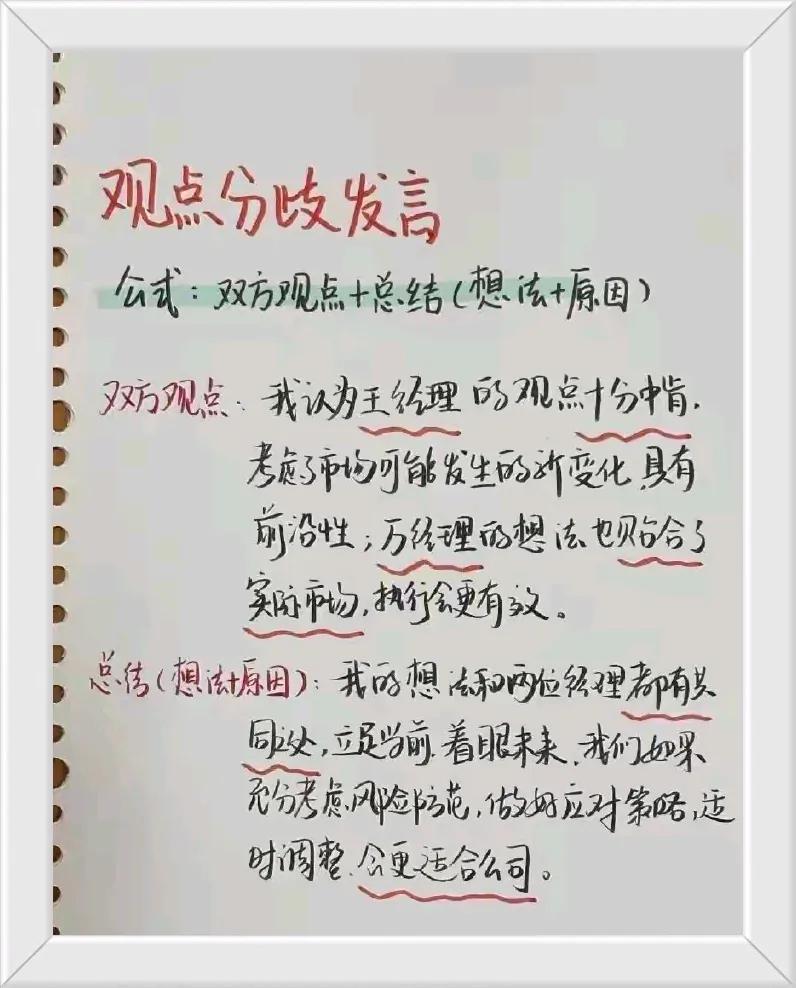 观点分歧发言
公式：双方观点+总结（想法+原因）
双方观点：我认为王经理的观点十分中肯，
考虑了市场可能发生的新变化，具有
前沿性；万经理的想法也贴合了
实际市场，执行会更有效。
总结（想法+原因）：我的想法和两位经理都有共
同之处，立足当前，着眼未来，我们如果
充分考虑风险防范，做好应对策略，适
时调整，会更适合公司。